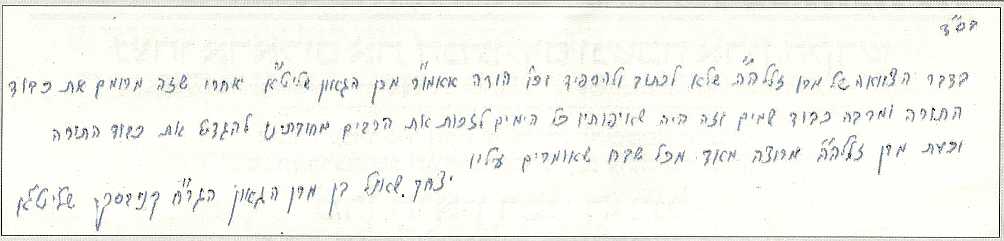 בס"ד
בדבר הצוואה של מרן זללה"ה שלא לכתוב ולהספיד וכו' הורה אאמו"ר מרן הגאון שליט"א אחרי שזה מרומם את כבוד
התורה ומרבה כבוד שמים וזה היה שאיפותיו כל הימים לזכות את הרבים להגדיל את כבוד התורה
וכעת מרן זללה"ה מרוצה מאוד מכל שבח שאומרים עליו
יצחק שאול בן מרן הגאון הגר"ח קניבסקי שליט"א